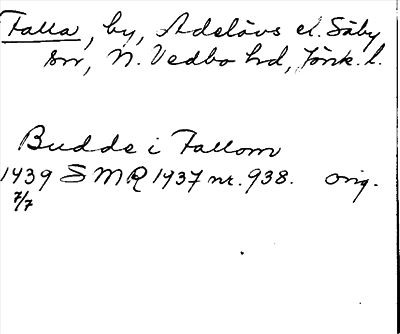 Falla, by, Adelövs el. Säby
snr, N. Vedbo hd, Jönk. l.
Budde i Fallom
1439 SMR 1937 nr. 938. orig.
7/7